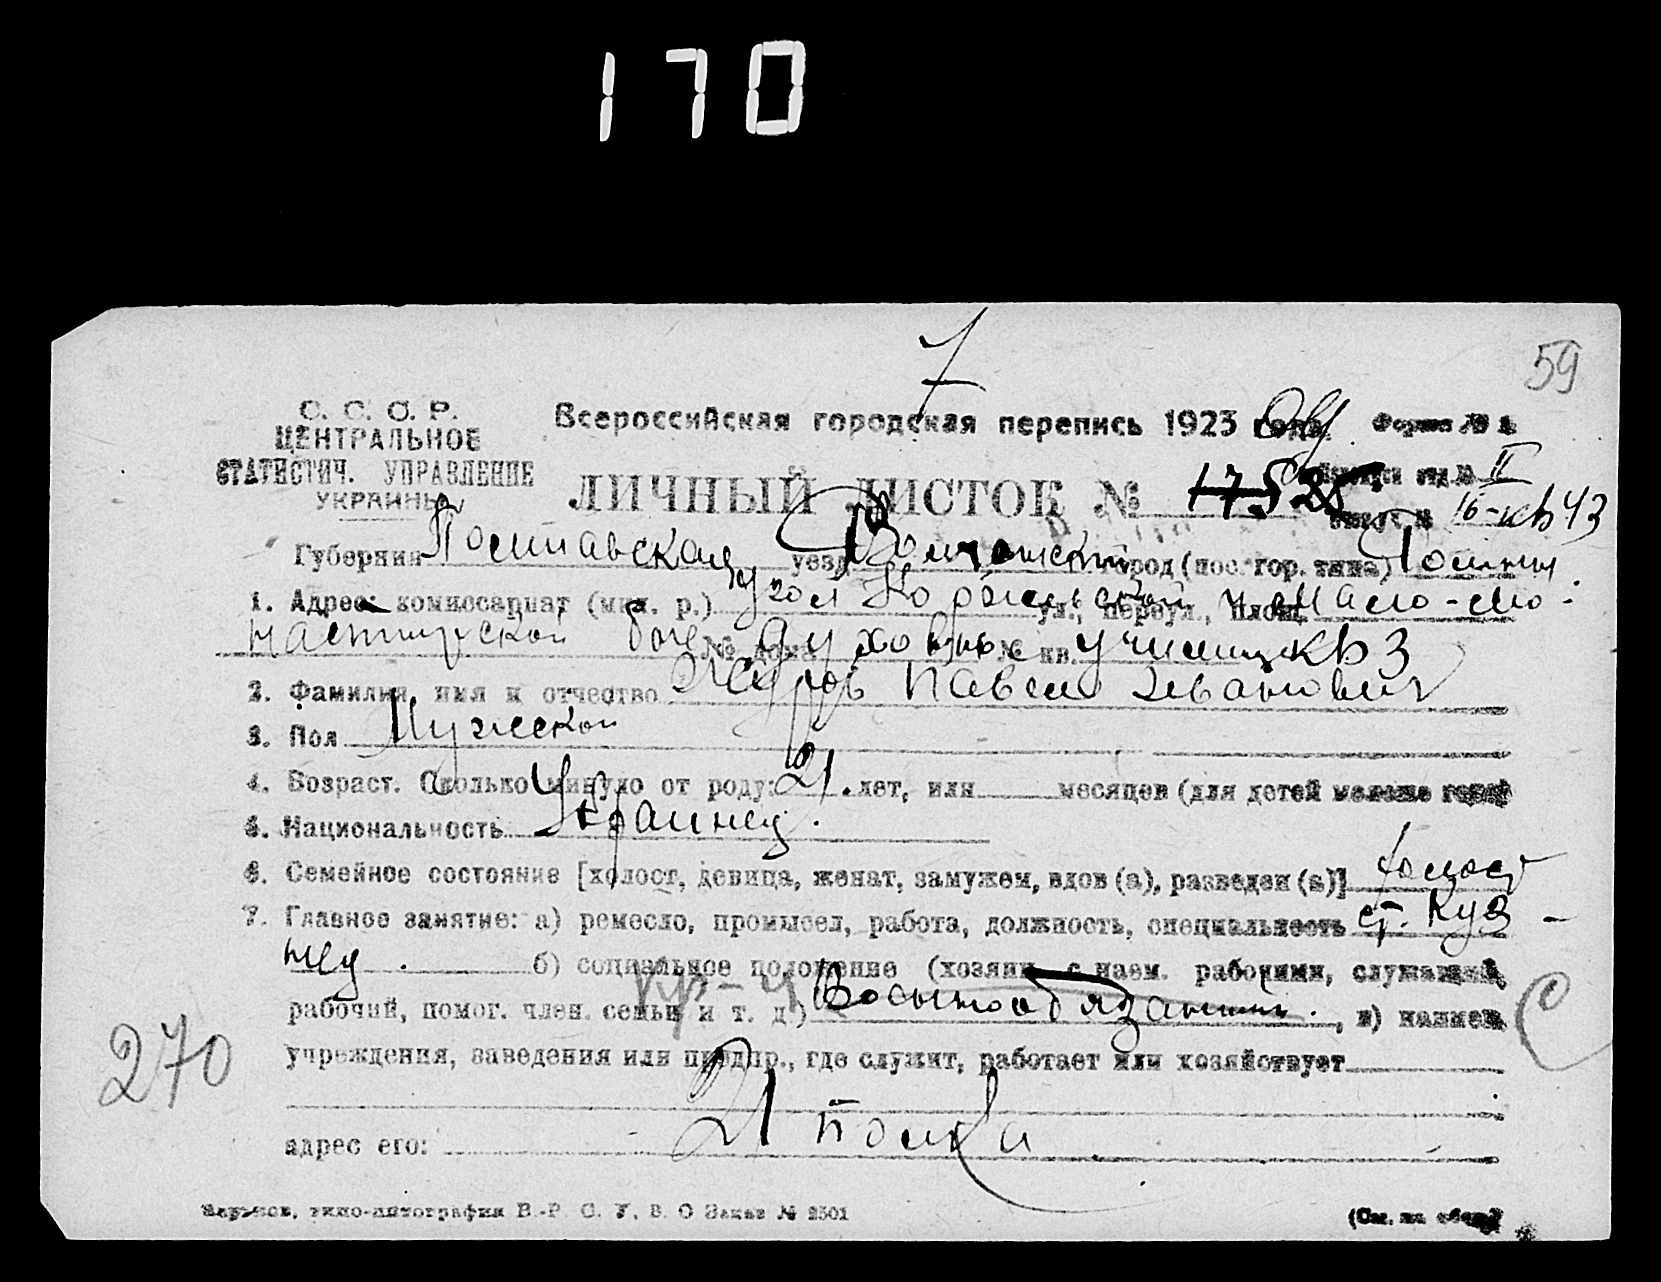 170
7
59
С. С. С. Р.
ЦЕНТРАЛЬНОЕ
СТАТИСТИЧ. УПРАВЛЕНИЕ
УКРАИНЫ
Всероссийская городская перепись 1923 года. Форма № 1
ЛИЧНЫЙ ЛИСТОК № 17525
отд. № II
16-кв 43
Губерния Полтавская уезд город (пос. гор. типа)
1. Адрес: комиссариат (мил. р.) угол ул., переул., площ. Мало-мо-
настирской № дома духовных № кв. училищ кв 3
2. Фамилия, имя и отчество Павел Иванович
3. Пол Мужской
4. Возраст. Сколько минуло от роду: 21. лет, или месяцев (для детей моложе года)
5. Национальность Украинец.
6. Семейное состояние [холост, девица, женат, замужем, вдов (а), разведен (а)] холост
7. Главное занятие: а) ремесло, промысел, работа, должность, специальность ст. Куз-
нец. б) социальное положение (хозяин с наем. рабочими, служащий,
рабочий, помог. член. семьи и т. д.) Военнообязанный. , в) наимен.
270
учреждения, заведения или предпр., где служит, работает или хозяйствует
адрес его: 21 полка
Харьков, типо-литография В.-Р. С. У. В. О Заказ № 2501
(См. на обор.)